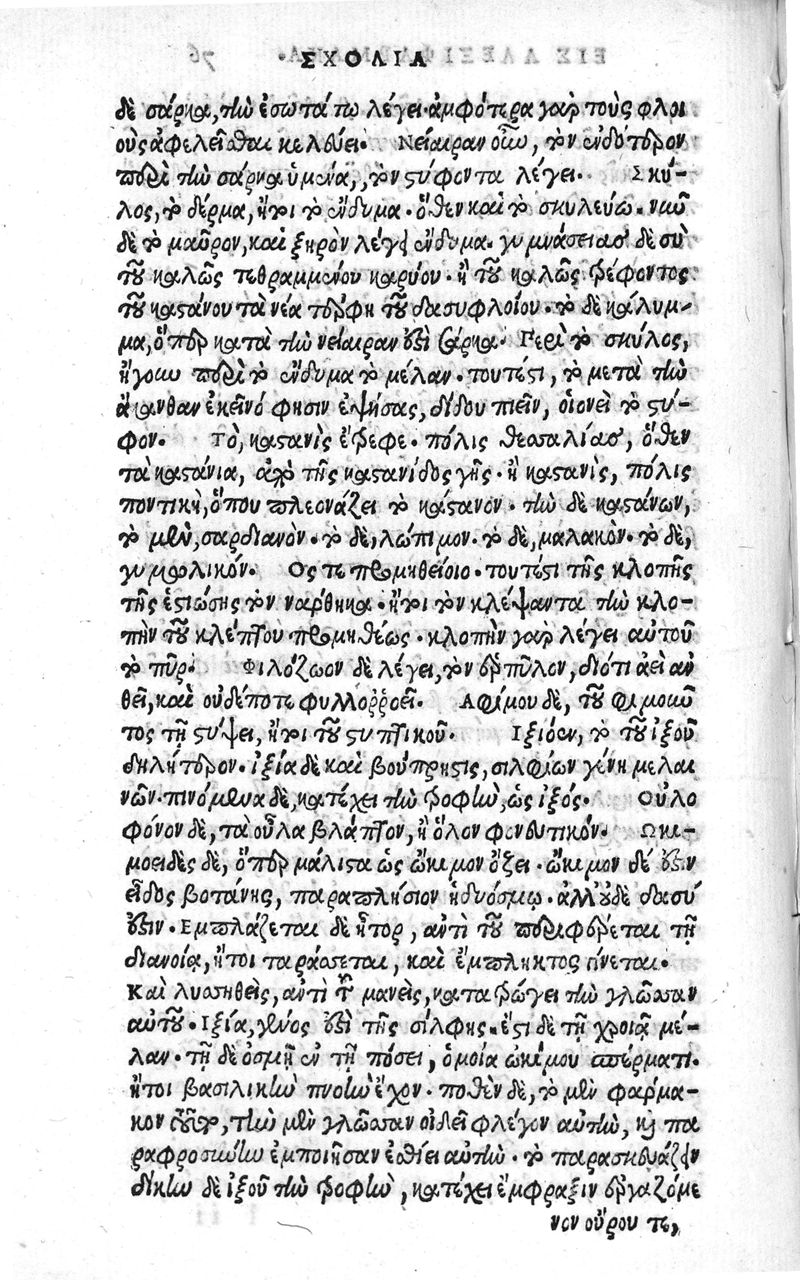 ΣΧΟΛΙΑ
δὲ σάρκα, τὴν ἐσωτάτω λέγει· ἀμφότερα γὰρ τοὺς φλοι
οὺς ἀφελεῖσθαι κελεύει. Νείαιραν οὖν, τὸν ἐνδότερον
περὶ τὴν σάρκα ὑμένα, τὸν στύφοντα λέγει. Σκύ-
λος, τὸ δέρμα, ἤτοι τὸ ἔνδυμα· ὅθεν καὶ τὸ σκυλεύω. νῦν
δὲ τὸ μαῦρον, καὶ ξηρὸν λέγει ἔνδυμα. γυμνάσειας δὲ σὺ
τοῦ καλῶς τεθραμμένου καρύου. ἢ τοῦ καλῶς τρέφοντος
τοῦ καστάνου τὰ νέα τέρφη τοῦ δασυφλοίου. τὸ δὲ κάλυμ-
μα, ὅπερ κατὰ τὴν νείαιραν ἐστὶ σάρκα. Περὶ τὸ σκύλος,
ἤγουν περὶ τὸ ἔνδυμα τὸ μέλαν. τουτέστι, τὸ μετὰ τὴν
ἄκανθαν ἐκεῖνό φησιν ἑψήσας, δίδου πιεῖν, οἱονεὶ τὸ στύ-
φον. Τὸ, καστανὶς ἔτρεφε. πόλις θεσσαλίας, ὅθεν
τὰ καστάνια, ἀπὸ τῆς καστανίδος γῆς. ἢ καστανὶς, πόλις
ποντικὴ, ὅπου πλεονάζει τὸ κάστανον. τῶν δὲ καστάνων,
τὸ μὲν, σαρδιανόν. τὸ δὲ, λώπιμον. τὸ δὲ, μαλακόν. τὸ δὲ,
γυμνολικόν. Ὅς τε προμηθείοιο. τουτέστι τῆς κλοπῆς
τῆς ἑστιώσης τὸν νάρθηκα. ἤτοι τὸν κλέψαντα τὴν κλο-
πὴν τοῦ κλέπτου προμηθέως. κλοπὴν γὰρ λέγει αὐτοῦ
τὸ πῦρ. Φιλόζωον δὲ λέγει, τὸν ἕρπυλον, διότι ἀεὶ ἀν
θεῖ, καὶ οὐδέποτε φυλλορροεῖ. Αφίμου δὲ, τοῦ φιμοῦν
τος τῇ στύψει, ἤτοι τοῦ στυπτικοῦ. Ιξιόεν, τὸ τοῦ ἰξοῦ
δηλητέριον. ἰξία δὲ καὶ βούπρηστις, σιλφίων γένη μελαι
νῶν. πινόμενα δὲ, κατέχει τὴν τροφὴν, ὡς ἰξός. Οὐλο
φόνον δὲ, τὰ οὖλα βλάπτον, ἢ ὅλον φονευτικόν. Ωκι-
μοειδὲς δὲ, ὅπερ μάλιστα ὡς ὤκιμον ὄζει. ὤκιμον δέ ἐστιν
εἶδος βοτάνης, παραπλήσιον ἡδυόσμῳ. ἀλλ' οὐδὲ δασύ
ἐστιν. Εμπλάζεται δὲ ἦτορ, ἀντὶ τοῦ περιφέρεται τῇ
διανοίᾳ, ἤτοι ταράσσεται, καὶ ἔμπληκτος γίνεται.
Καὶ λυσσηθεὶς, ἀντὶ τοῦ μανεὶς, κατατρώγει τὴν γλῶσσαν
αὐτοῦ. Ιξία, γένος ἐστὶ τῆς σίλφης. ἔστι δὲ τῇ χροιᾷ μέ-
λαν. τῇ δὲ ὀσμῇ ἐν τῇ πόσει, ὁμοία ὠκίμου σπέρματι.
ἤτοι βασιλικὴν πνοὴν ἔχον. ποθὲν δὲ, τὸ μὲν φάρμα-
κον τοῦτο, τὴν μὲν γλῶσσαν οἰδεῖ φλέγον αὐτὴν, καὶ πα
ραφροσύνην ἐμποιῆσαν ἐσθίει αὐτήν. τὸ παρασκευάζειν
δίκην δὲ ἰξοῦ τὴν τροφὴν, κατέχει ἔμφραξιν ἐργαζόμε
νον οὔρου τε,